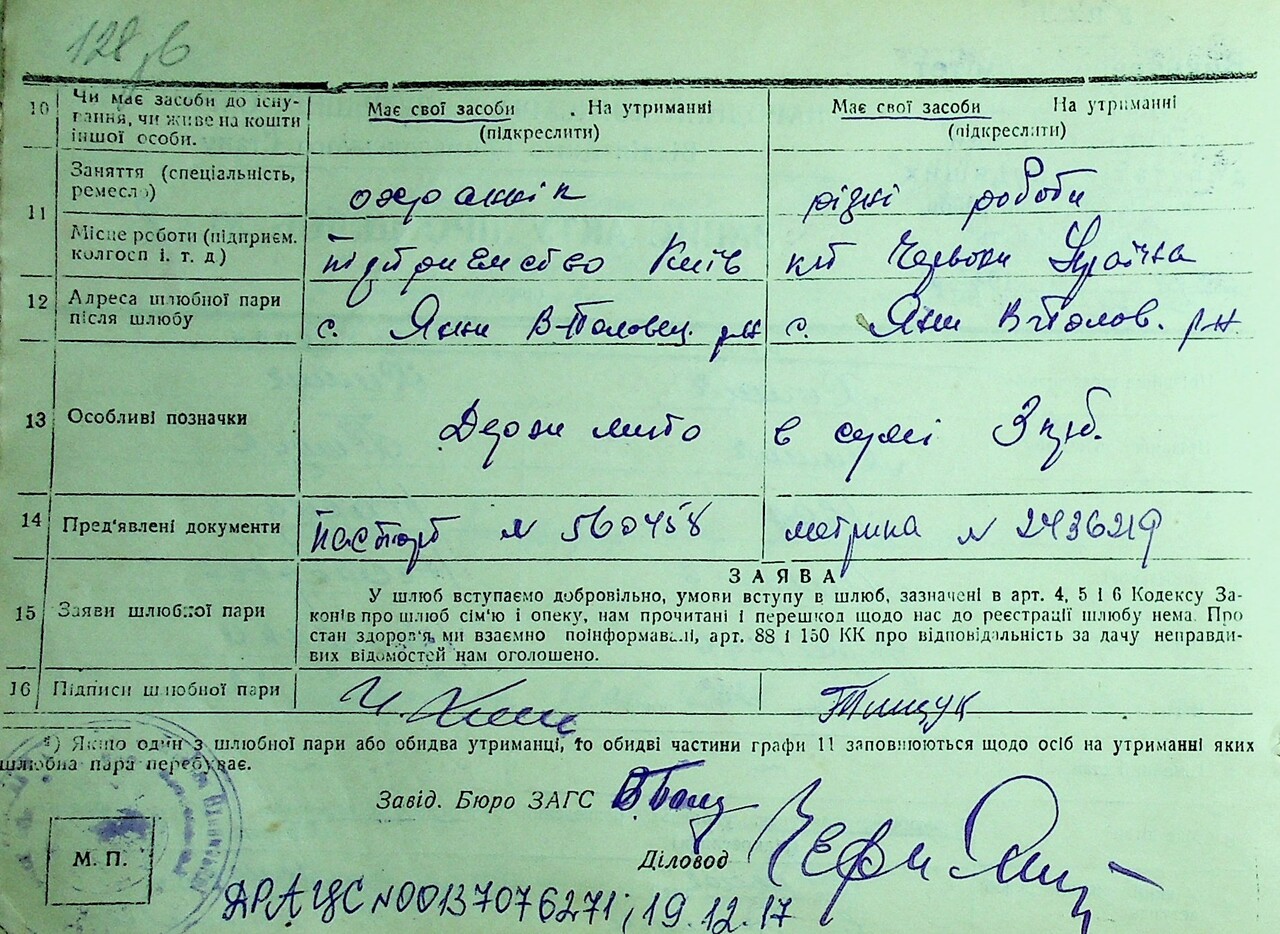 128 зв
10 Чи має засоби до існу-
вання, чи живе на кошти
іншої особи.
Має свої засоби . На утриманні
(підкреслити)
Має свої засоби На утриманні
(підкреслити)
11 Заняття (спеціальність,
ремесло)
охраннік
різні роботи
Місце роботи (підприєм.
колгосп і. т. д)
підприємство Київ
клг Червона Україна
12 Адреса шлюбної пари
після шлюбу
с. Яхни В-Половец. р-н
с. Яхни В-Полов. р-н
13 Особливі позначки
Держ мито в сумі 3 крб.
14 Пред'явлені документи
Паспорт N 560458
метрика N 2436219
15 Заяви шлюбної пари
ЗАЯВА
У шлюб вступаємо добровільно, умови вступу в шлюб, зазначені в арт. 4, 5 і 6 Кодексу За-
конів про шлюб сім'ю і опеку, нам прочитані і перешкод щодо нас до реєстрації шлюбу нема. Про
стан здоров'я, ми взаємно поінформавалі, арт. 88 і 150 КК про відповідальність за дачу неправди-
вих відомостей нам оголошено.
16 Підписи шлюбної пари
Тищук
*) Якщо один з шлюбної пари або обидва утриманці, то обидві частини графи 11 заповнюються щодо осіб на утриманні яких
шлюбна пара перебуває.
Завід. Бюро ЗАГС
Діловод
М. П.
ДРАЦС N00137076271; 19.12.17